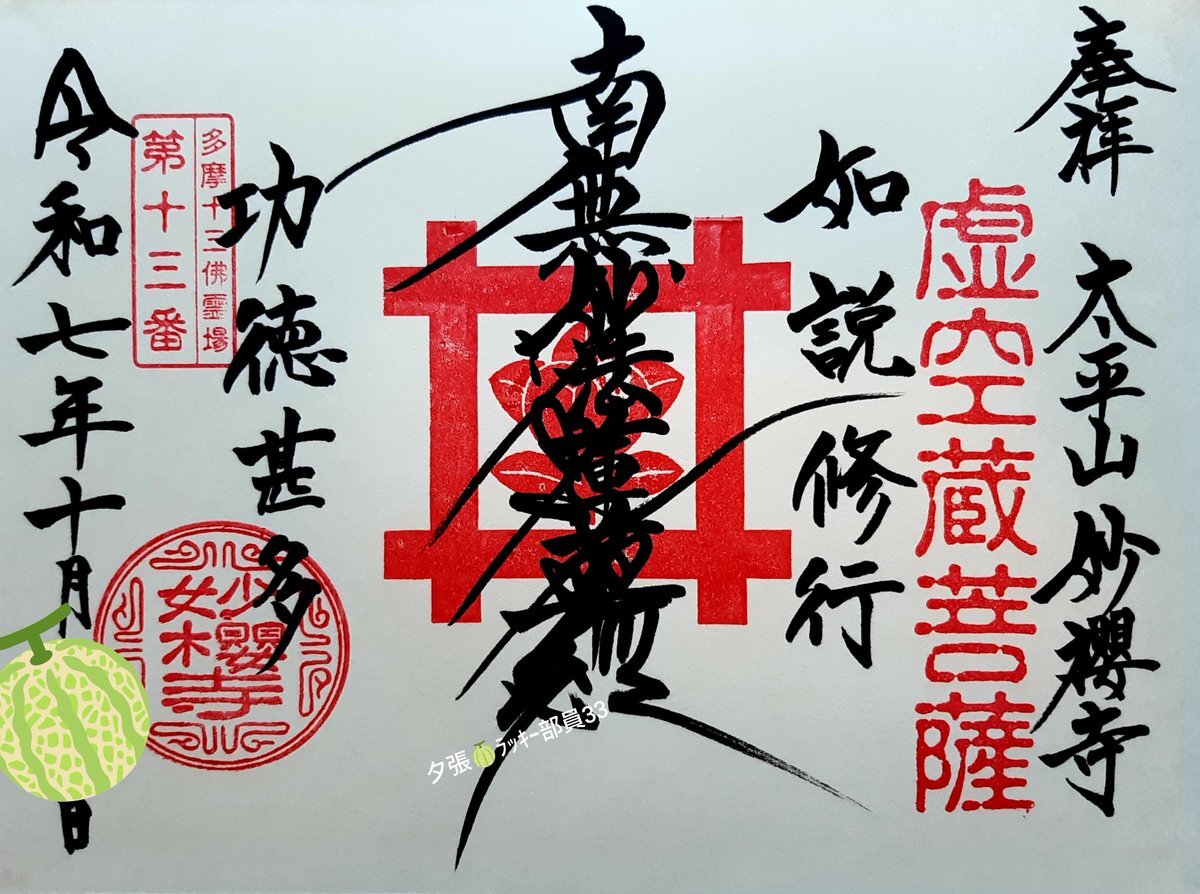 奉拝 太平山 妙櫻寺
虚空蔵菩薩
如説修行
南無妙法蓮華經
功徳甚多
多摩十三佛霊場
第十三番
妙櫻寺
令和七年十月 日
夕張🍈ﾗｯｷｰ部員33